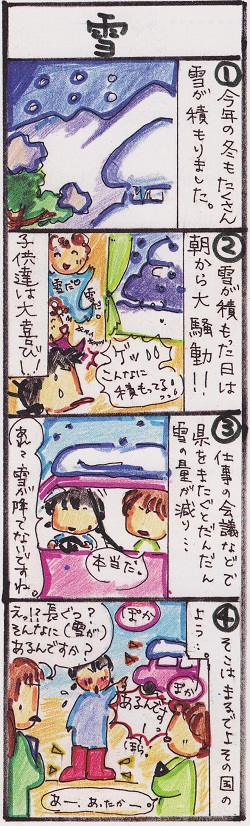 雪
①今年の冬もたくさん
雪が積もりました。
②雪が積もった日は
朝から大騒動!!
ゲッ!!
こんなに
積もってる!
雪だ。
雪。
子供達は大喜び!!
③仕事の会議などで
県をまたぐとだんだん
雪の量が減り…
本当だ。
あれ?雪が降ってないですね。
④そこはまるでよその国の
よう…。
ぽか
ぽか
えっ!?長ぐつ?
そんなに(雪が)
あるんですか?
あるんです
!
(ほら。
あー、あったかー。